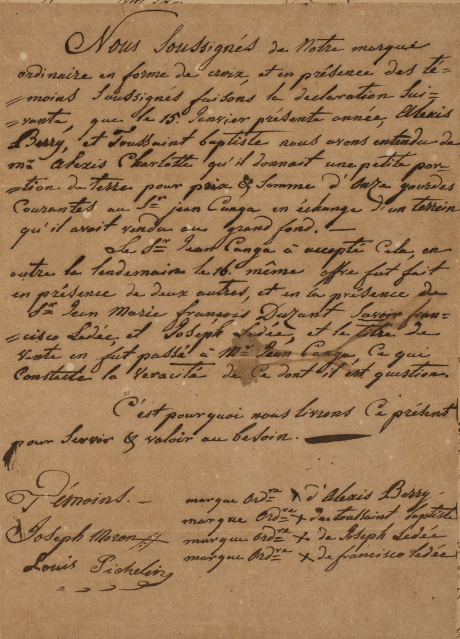 Nous Soussignés de Notre marque
ordinaire en forme de croix, et en présence des té=
=moins Soussignés faisons la declaration Sui=
=vante, que le 15. Janvier présente année, Alexis
Berry, et Toussaint baptiste nous avons entendu de
mr. Alexis Charlotte qu'il donnait une petite por=
=tion de terre pour prix & Somme d'Onze gourdes
Courantes au Sr. jean Canga en échange d'un terrein
qu'il avait vendu au grand fond. —
Le Sr. Jean Canga a accepté Cela, en
outre le lendemain le 16. même offre fut fait
en présence de deux autres, et en la présence de
Sr. Jean Marie françois Duzant Savoir fran=
=cisco Ledée, et Joseph Ledée, et le titre de
Vente en fut passé à Mr. Jean Canga, Ce qui
Constate la Veracité de Ce dont il est question.
C'est pourquoi nous livrons Ce présent
pour Servir & valoir au besoin. —
Témoins. —
Joseph Moron
Louis Pichelin
marque Ordre X d'Alexis Berry
marque Ordre X de toussaint baptiste
marque Ordre X de Joseph Ledée
marque Ordre X de francisco Ledée